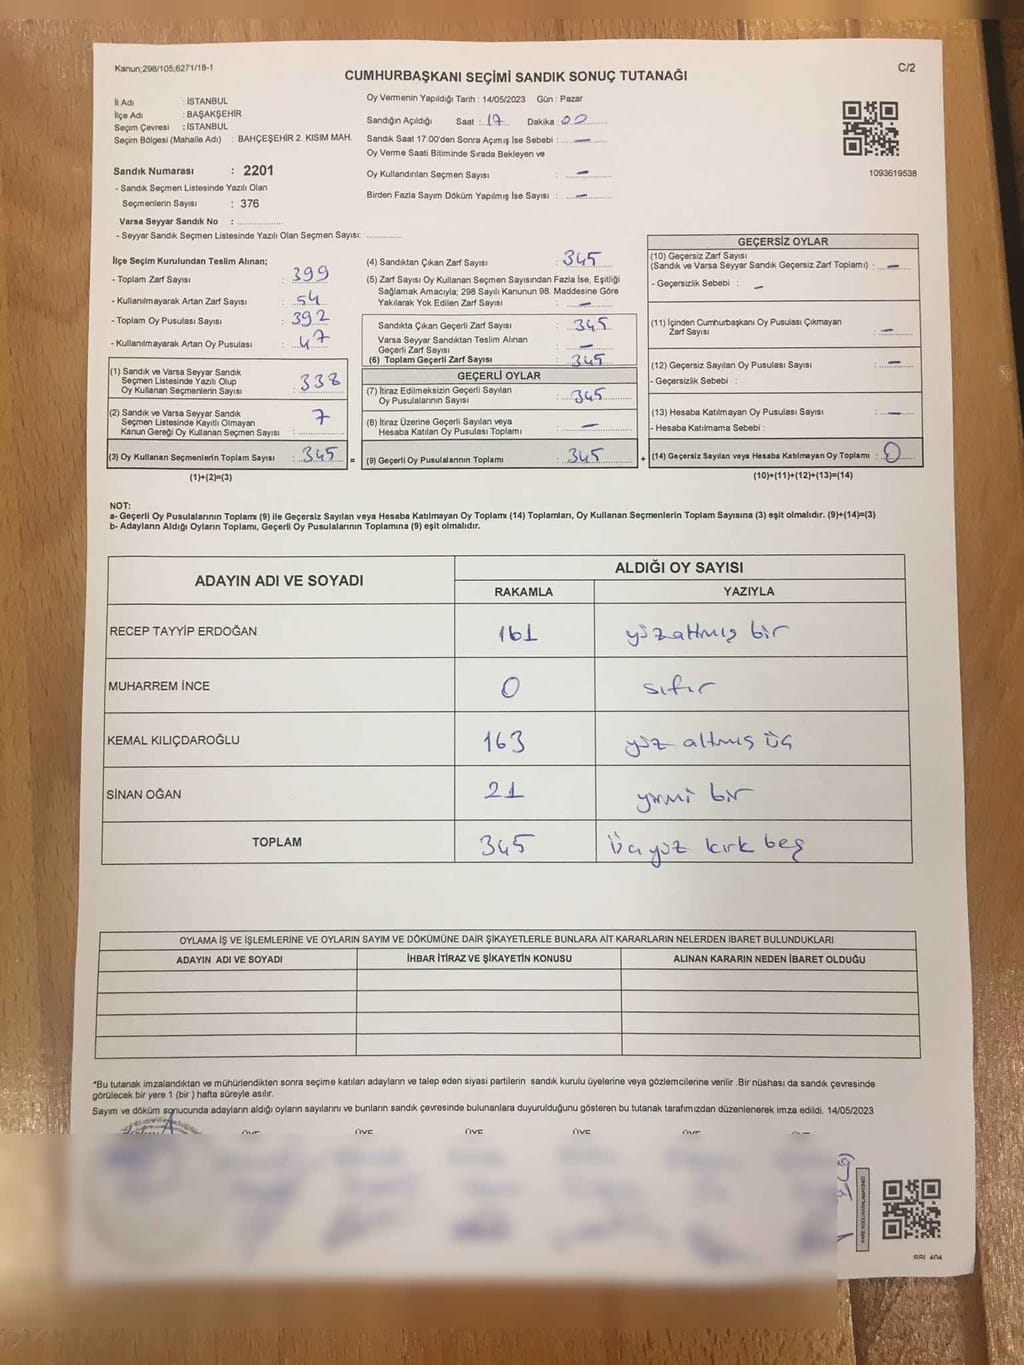 Kanun;298/105;6271/18-1
C/2
CUMHURBAŞKANI SEÇİMİ SANDIK SONUÇ TUTANAĞI
İl Adı : İSTANBUL
İlçe Adı : BAŞAKŞEHİR
Seçim Çevresi : İSTANBUL
Seçim Bölgesi (Mahalle Adı) : BAHÇEŞEHİR 2. KISIM MAH.
Sandık Numarası : 2201
- Sandık Seçmen Listesinde Yazılı Olan
Seçmenlerin Sayısı : 376
Varsa Seyyar Sandık No : ..............
- Seyyar Sandık Seçmen Listesinde Yazılı Olan Seçmen Sayısı: ..............
Oy Vermenin Yapıldığı Tarih : 14/05/2023 Gün : Pazar
Sandığın Açıldığı Saat : 17 Dakika : 00
Sandık Saat 17:00'den Sonra Açımış İse Sebebi : —
Oy Verme Saati Bitiminde Sırada Bekleyen ve
Oy Kullandırılan Seçmen Sayısı : —
Birden Fazla Sayım Döküm Yapılmış İse Sayısı : —
1093619538
İlçe Seçim Kurulundan Teslim Alınan;
- Toplam Zarf Sayısı : 399
- Kullanılmayarak Artan Zarf Sayısı : 54
- Toplam Oy Pusulası Sayısı : 392
- Kullanılmayarak Artan Oy Pusulası : 47
(1) Sandık ve Varsa Seyyar Sandık
Seçmen Listesinde Yazılı Olup
Oy Kullanan Seçmenlerin Sayısı : 338
(2) Sandık ve Varsa Seyyar Sandık
Seçmen Listesinde Kayıtlı Olmayan
Kanun Gereği Oy Kullanan Seçmen Sayısı : 7
(3) Oy Kullanan Seçmenlerin Toplam Sayısı : 345 =
(1)+(2)=(3)
(4) Sandıktan Çıkan Zarf Sayısı : 345
(5) Zarf Sayısı Oy Kullanan Seçmen Sayısından Fazla İse, Eşitliği
Sağlamak Amacıyla; 298 Sayılı Kanunun 98. Maddesine Göre
Yakılarak Yok Edilen Zarf Sayısı : —
Sandıkta Çıkan Geçerli Zarf Sayısı : 345
Varsa Seyyar Sandıktan Teslim Alınan
Geçerli Zarf Sayısı : —
(6) Toplam Geçerli Zarf Sayısı : 345
GEÇERLİ OYLAR
(7) İtiraz Edilmeksizin Geçerli Sayılan
Oy Pusulalarının Sayısı : 345
(8) İtiraz Üzerine Geçerli Sayılan veya
Hesaba Katılan Oy Pusulası Toplamı : —
(9) Geçerli Oy Pusulalarının Toplamı : 345 +
GEÇERSİZ OYLAR
(10) Geçersiz Zarf Sayısı
(Sandık ve Varsa Seyyar Sandık Geçersiz Zarf Toplamı) : —
- Geçersizlik Sebebi : —
(11) İçinden Cumhurbaşkanı Oy Pusulası Çıkmayan
Zarf Sayısı : —
(12) Geçersiz Sayılan Oy Pusulası Sayısı : —
- Geçersizlik Sebebi :
(13) Hesaba Katılmayan Oy Pusulası Sayısı : —
- Hesaba Katılmama Sebebi :
(14) Geçersiz Sayılan veya Hesaba Katılmayan Oy Toplamı : 0
(10)+(11)+(12)+(13)=(14)
NOT:
a- Geçerli Oy Pusulalarının Toplamı (9) ile Geçersiz Sayılan veya Hesaba Katılmayan Oy Toplamı (14) Toplamları, Oy Kullanan Seçmenlerin Toplam Sayısına (3) eşit olmalıdır. (9)+(14)=(3)
b- Adayların Aldığı Oyların Toplamı, Geçerli Oy Pusulalarının Toplamına (9) eşit olmalıdır.
ADAYIN ADI VE SOYADI
ALDIĞI OY SAYISI
RAKAMLA YAZIYLA
RECEP TAYYİP ERDOĞAN 161 yüzaltmış bir
MUHARREM İNCE 0 sıfır
KEMAL KILIÇDAROĞLU 163 yüz altmış üç
SİNAN OĞAN 21 yirmi bir
TOPLAM 345 Üçyüz kırk beş
OYLAMA İŞ VE İŞLEMLERİNE VE OYLARIN SAYIM VE DÖKÜMÜNE DAİR ŞİKAYETLERLE BUNLARA AİT KARARLARIN NELERDEN İBARET BULUNDUKLARI
ADAYIN ADI VE SOYADI İHBAR İTİRAZ VE ŞİKAYETİN KONUSU ALINAN KARARIN NEDEN İBARET OLDUĞU
*Bu tutanak imzalandıktan ve mühürlendikten sonra seçime katılan adayların ve talep eden siyasi partilerin sandık kurulu üyelerine veya gözlemcilerine verilir .Bir nüshası da sandık çevresinde
görülecek bir yere 1 (bir ) hafta süreyle asılır.
Sayım ve döküm sonucunda adayların aldığı oyların sayılarını ve bunların sandık çevresinde bulunanlara duyurulduğunu gösteren bu tutanak tarafımızdan düzenlenerek imza edildi. 14/05/2023
ÜYE ÜYE ÜYE ÜYE ÜYE